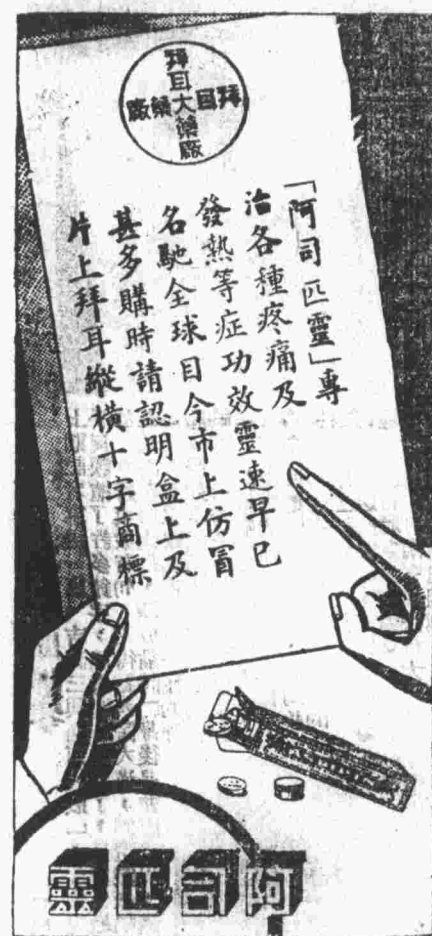 拜耳大藥廠
拜耳大藥廠
「阿司匹靈」專
治各種疼痛及
發熱等症功效靈速早已
名馳全球目今市上仿冒
甚多購時請認明盒上及
片上拜耳縱橫十字商標
阿司匹靈